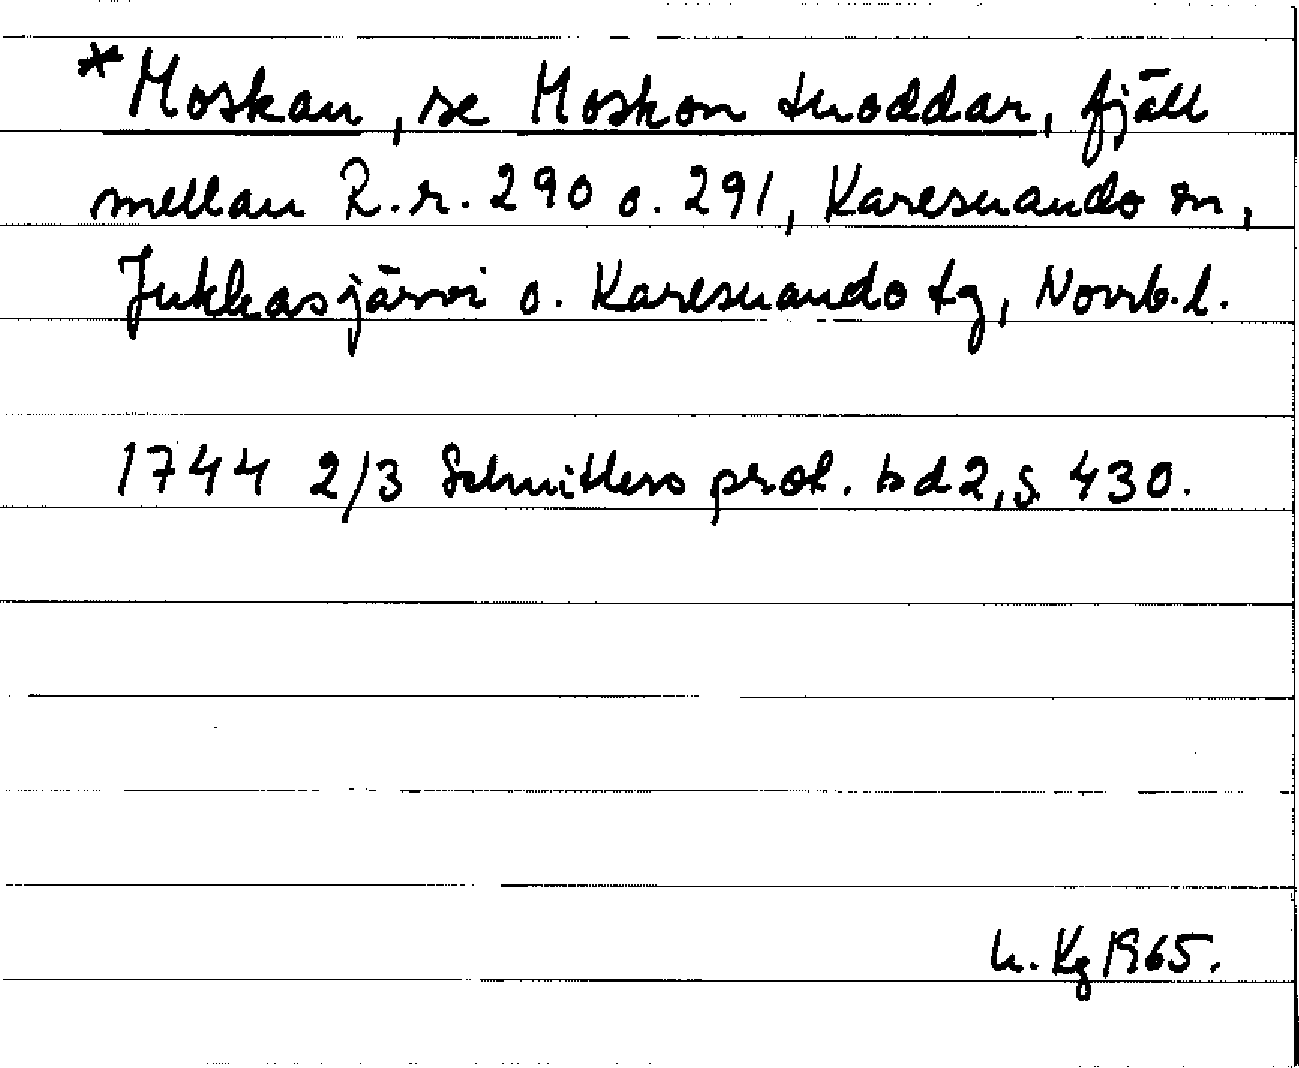 *Moskan, se Moskon tuoddar, fjäll
mellan R.r. 290 o. 291, Karesuando sn,
Jukkasjärvi o. Karesuando tg, Norrb.l.
1744 2/3 Schnitlers prot. bd 2, s 430.
h. Kg 1965.